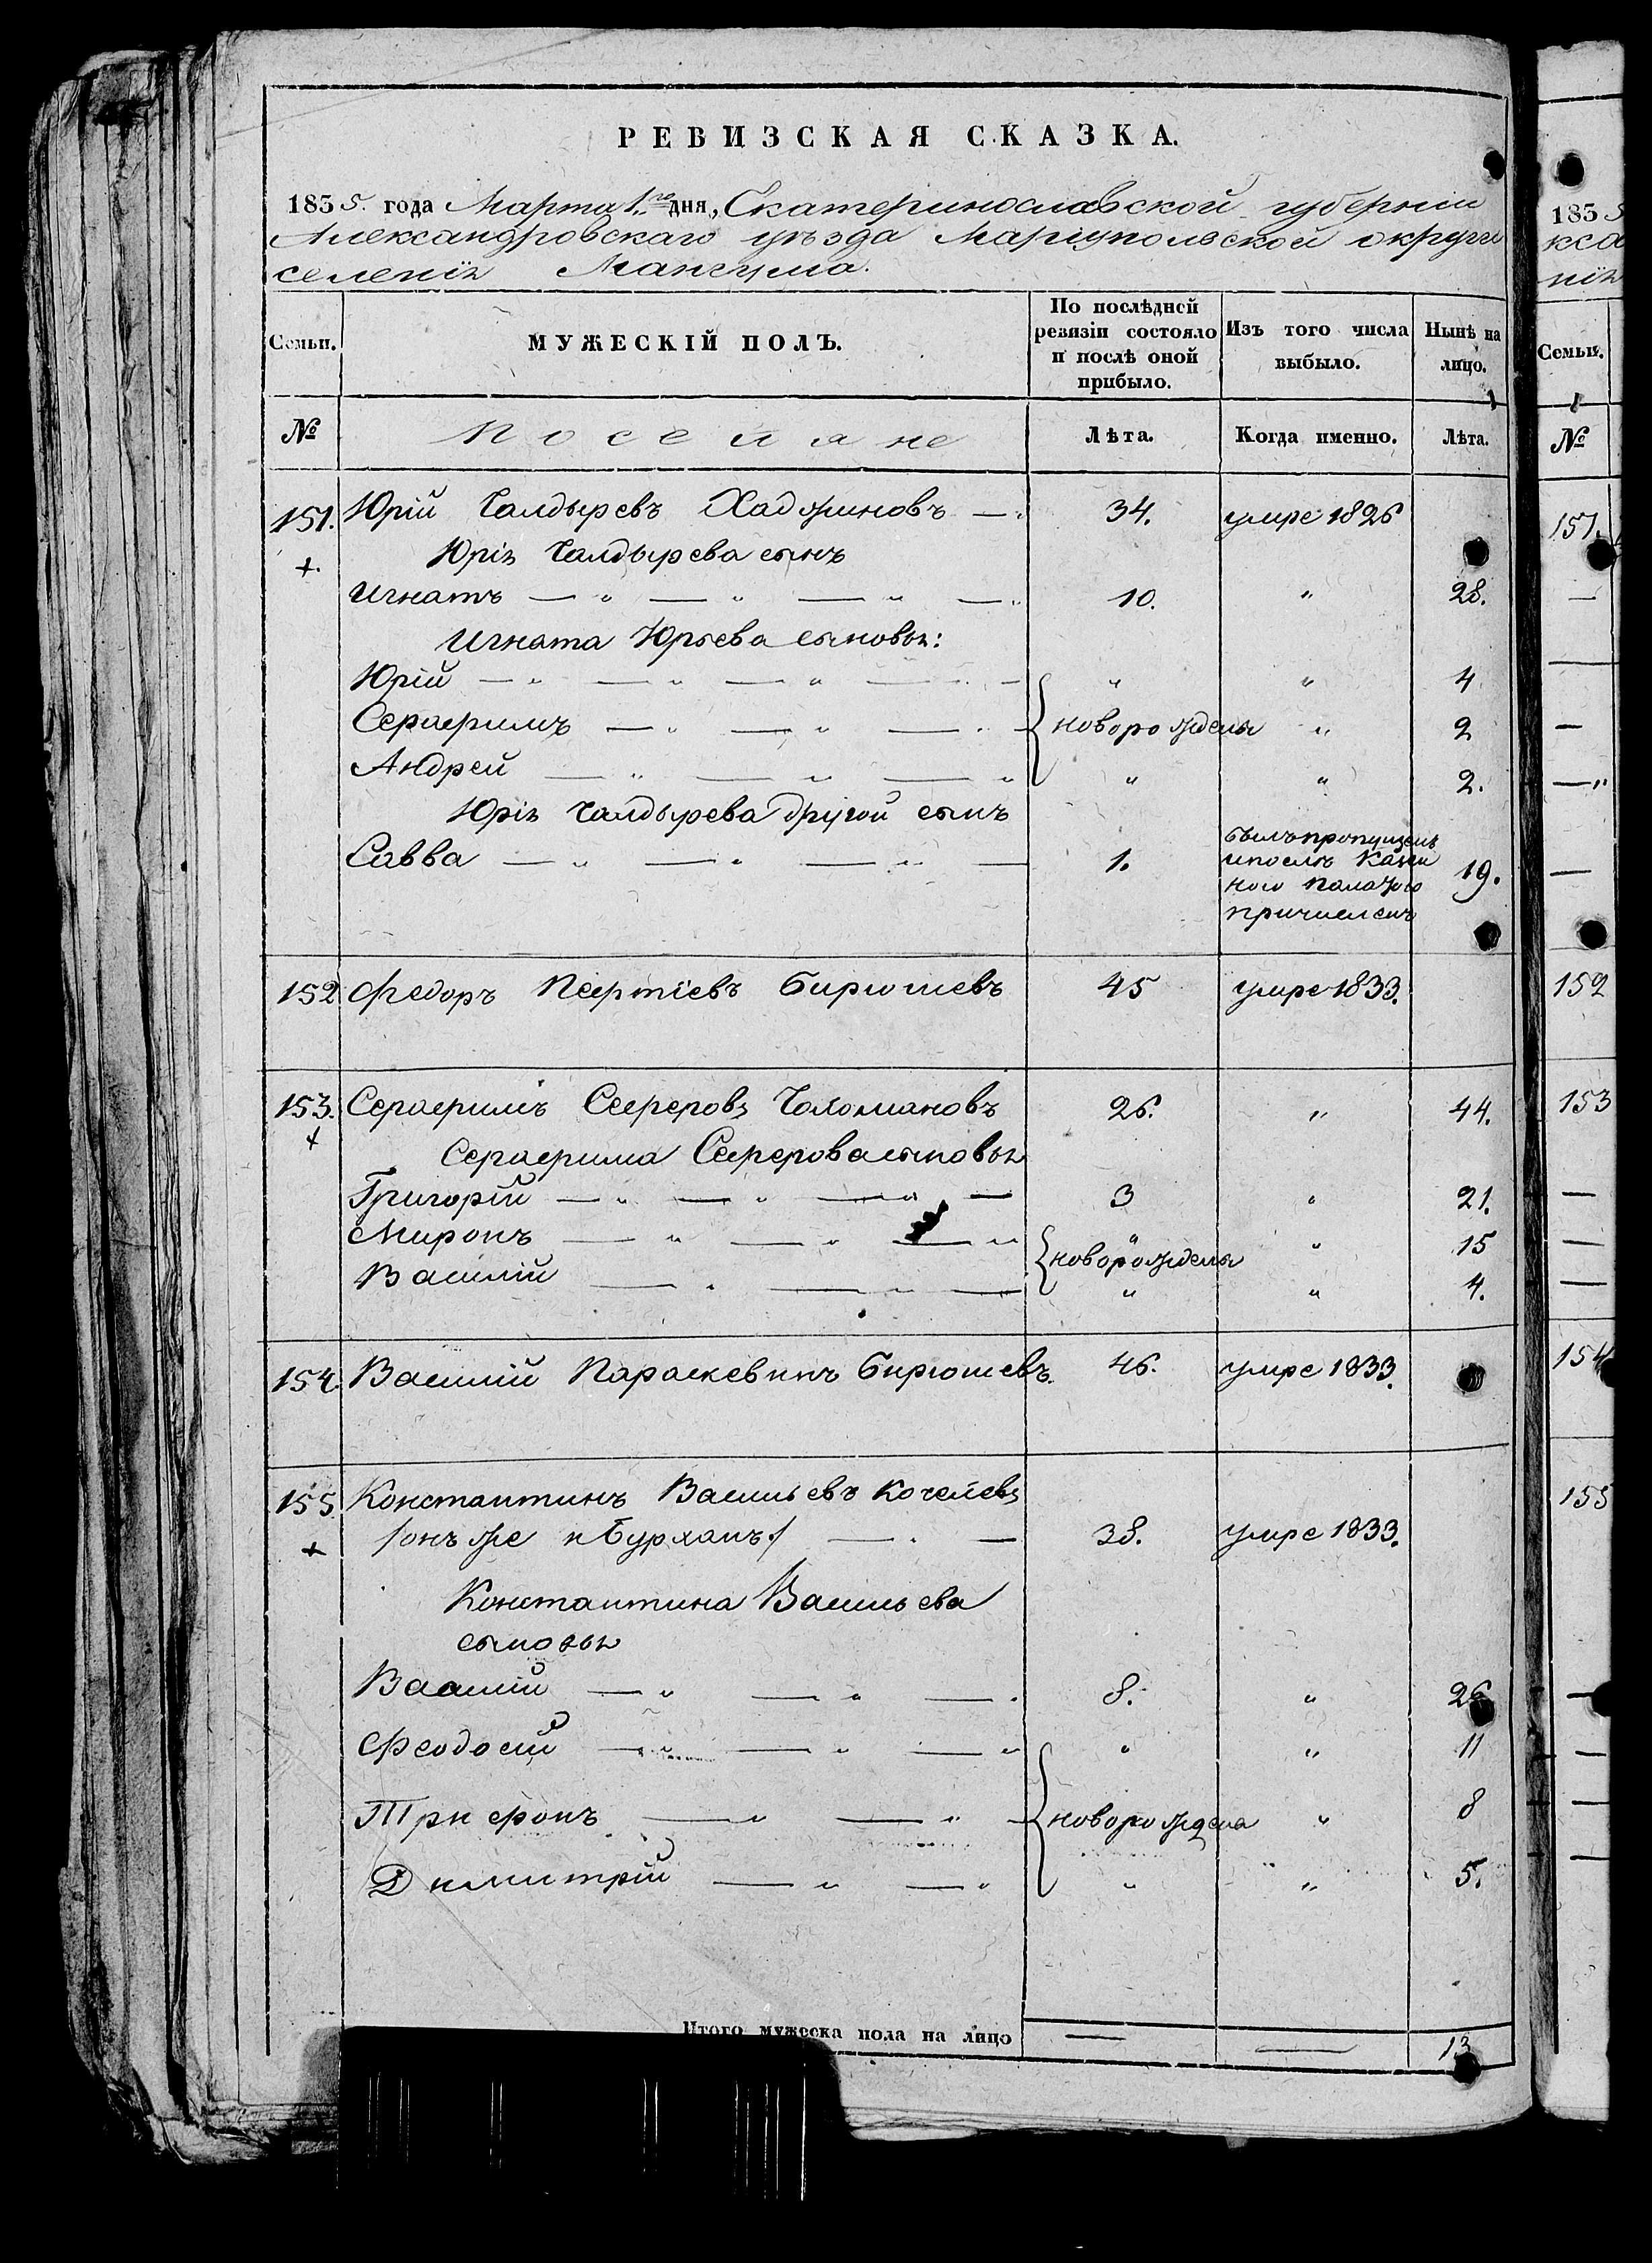 РЕВИЗСКАЯ СКАЗКА.
1835. года Марта 1.го дня, Екатеринославской губернии
Александровскаго уѣзда Маріупольской округи
селенія Мангуша.
Семьи.
МУЖЕСКІЙ ПОЛЪ.
По послѣдней ревизіи состояло и послѣ оной прибыло.
Изъ того числа выбыло.
Нынѣ на лицо.
№ Поселяне Лѣта. Когда именно. Лѣта.
151. Юрій Чалдыревъ Хаджиновъ — 34. умре 1826
+. Юрія Чалдырева сынъ
Игнатъ — " — " — " — " 10. " 28.
Игната Юрьева сыновья:
Юрій — " — " — " — " — " " 4
Серафимъ — " — " — " — новорождены " 2
Андрей — " — " — " " " 2.
Юрія Чалдырева другой сынъ
Савва — " — " — " — 1. былъ пропущенъ
и послѣ Казен
ною палатою 19.
причисленъ
152 Федоръ Пефтіевъ Бирюшевъ 45 умре 1833.
153. Серафимъ Сеферовъ Чохмановъ 26. " 44.
+ Серафима Сеферова сыновья
Григорій — " — " — " — 3 " 21.
Миронъ — " — " — " " " 15
новорождены
Василій — " — " — " " 4.
154. Василій Параскевинъ Бирюшевъ. 46. умре 1833.
155. Константинъ Васильевъ Кочеїевъ
+ /онъ же и Бурханъ/ — " — 28. умре 1833.
Константина Васильева
сыновья
Василій — " — " — " 8. " 26
Феодосій — " — " — " " " 11
Трифонъ — " — " — новорождена " 8
Димитрій — " — " " " 5.
Итого мужеска пола на лицо — — 13
185
Семьи.
№
151.
152
153
154
155